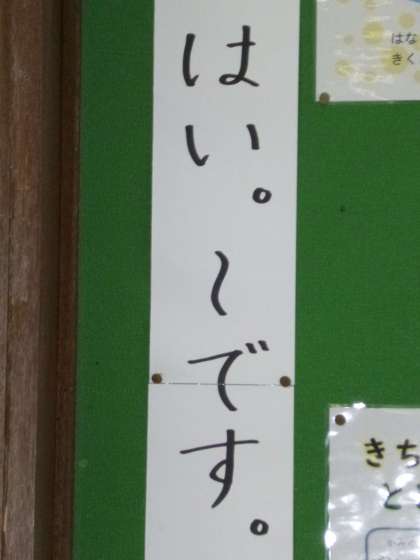 はい。〜です。
はな
きく
きち